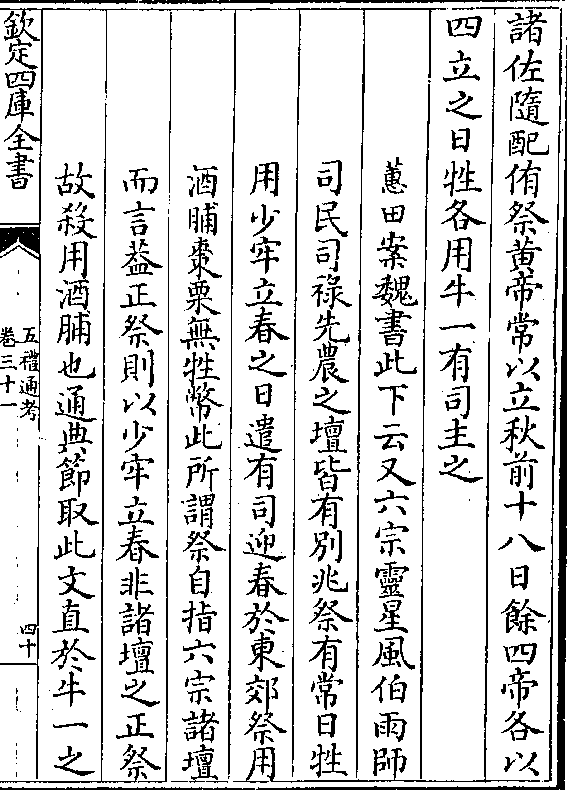 諸佐隨配侑祭黄帝常以立秋前十八日餘四帝各以
四立之日牲各用牛一有司主之
蕙田案魏書此下云又六宗靈星風伯雨師
司民司祿先農之壇皆有別兆祭有常日牲
用少牢立春之日遣有司迎春於東郊祭用
酒脯棗栗無牲幣此所謂祭自指六宗諸壇
而言葢正祭則以少牢立春非諸壇之正祭
故殺用酒脯也通典節取此文直於牛一之
欽定四庫全書
五禮通考
卷三十一
四十